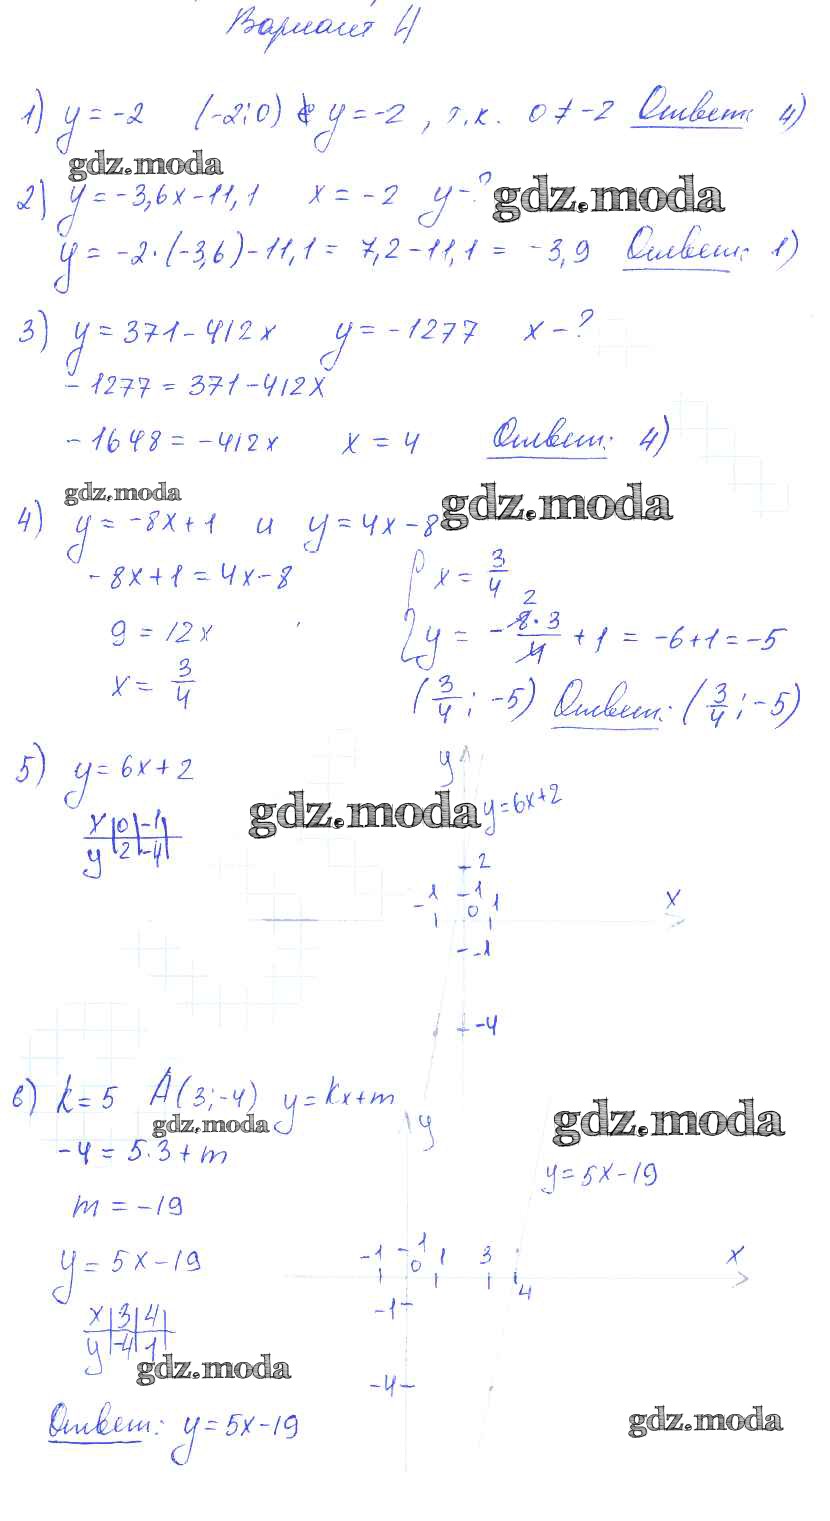 Вариант 4
1) y = -2 (-2; 0) ∉ y = -2, т.к. 0 ≠ -2 Ответ: 4)
gdz.moda
2) y = -3,6x - 11,1 x = -2 y - ?
gdz.moda
y = -2·(-3,6) - 11,1 = 7,2 - 11,1 = -3,9 Ответ: 1)
3) y = 371 - 412x y = -1277 x - ?
-1277 = 371 - 412x
-1648 = -412x x = 4 Ответ: 4)
gdz.moda
gdz.moda
4) y = -8x + 1 и y = 4x - 8
-8x + 1 = 4x - 8
9 = 12x
x = 3/4
{ x = 3/4
2
y = -8·3/4 + 1 = -6 + 1 = -5
(3/4; -5) Ответ: (3/4; -5)
5) y = 6x + 2
x | 0 | -1
y | 2 | -4
gdz.moda
y
y = 6x + 2
2
-1 1
0 1
x
-1
-4
6) k = 5 A(3; -4) y = kx + m
gdz.moda
gdz.moda
-4 = 5·3 + m
m = -19
y = 5x - 19
x | 3 | 4
y | -4 | 1
gdz.moda
Ответ: y = 5x - 19
y
y = 5x - 19
-1 1 0 1 3 4
x
-1
-4
gdz.moda